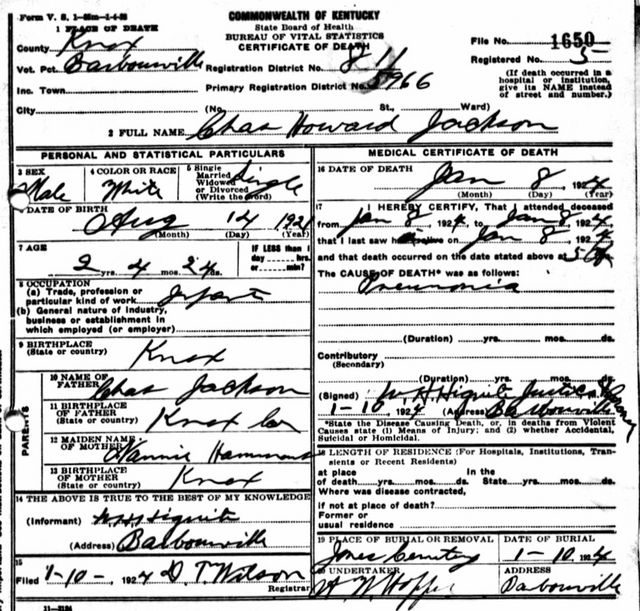 Form V. S. 1-
COMMONWEALTH OF KENTUCKY
State Board of Health
BUREAU OF VITAL STATISTICS
CERTIFICATE OF DEATH
1 PLACE OF DEATH
County Knox
File No. 1650
Registered No. 5
Vot. Pct. Barbourville
Registration District No. 811
(If death occurred in a hospital or institution, give its NAME instead of street and number.)
Inc. Town
Primary Registration District No. 5966
City (No. St., Ward)
2 FULL NAME Chas Howard Jackson
PERSONAL AND STATISTICAL PARTICULARS
3 SEX Male
4 COLOR OR RACE White
5 Single Married Widowed or Divorced (Write the word) Single
6 DATE OF BIRTH
Aug 14 1921
(Month) (Day) (Year)
7 AGE
2 yrs. 4 mos. 24 ds.
IF LESS than 1 day hrs. or min.?
8 OCCUPATION
(a) Trade, profession or particular kind of work Infant
(b) General nature of industry, business or establishment in which employed (or employer)
9 BIRTHPLACE
(State or country) Knox
PARENTS
10 NAME OF FATHER Chas Jackson
11 BIRTHPLACE OF FATHER
(State or country) Knox Co
12 MAIDEN NAME OF MOTHER Nannie
13 BIRTHPLACE OF MOTHER
(State or country) Knox
14 THE ABOVE IS TRUE TO THE BEST OF MY KNOWLEDGE
(Informant) W H Hignite
(Address) Barbourville
15
Filed 1-10-, 1924 D. T. Wilson
Registrar
MEDICAL CERTIFICATE OF DEATH
16 DATE OF DEATH
Jan 8, 1924
(Month) (Day) (Year)
17 I HEREBY CERTIFY, That I attended deceased
from Jan 8 1924, to Jan 8 1924
that I last saw h alive on Jan 8, 1924
and that death occurred on the date stated above at 5
The CAUSE OF DEATH* was as follows:
Pneumonia
(Duration) yrs. mos. ds.
Contributory
(Secondary)
(Duration) yrs. mos. ds.
(Signed) W H Hignite Justice
1-10, 1924 (Address) Barbourville
*State the Disease Causing Death, or, in deaths from Violent Causes state (1) Means of Injury; and (2) whether Accidental, Suicidal or Homicidal.
18 LENGTH OF RESIDENCE (For Hospitals, Institutions, Transients or Recent Residents)
at place of death yrs. mos. ds. In the State yrs. mos. ds.
Where was disease contracted,
if not at place of death?
Former or
usual residence
19 PLACE OF BURIAL OR REMOVAL
Jones Cemetery
DATE OF BURIAL
1-10 1924
20 UNDERTAKER
ADDRESS
Barbourville